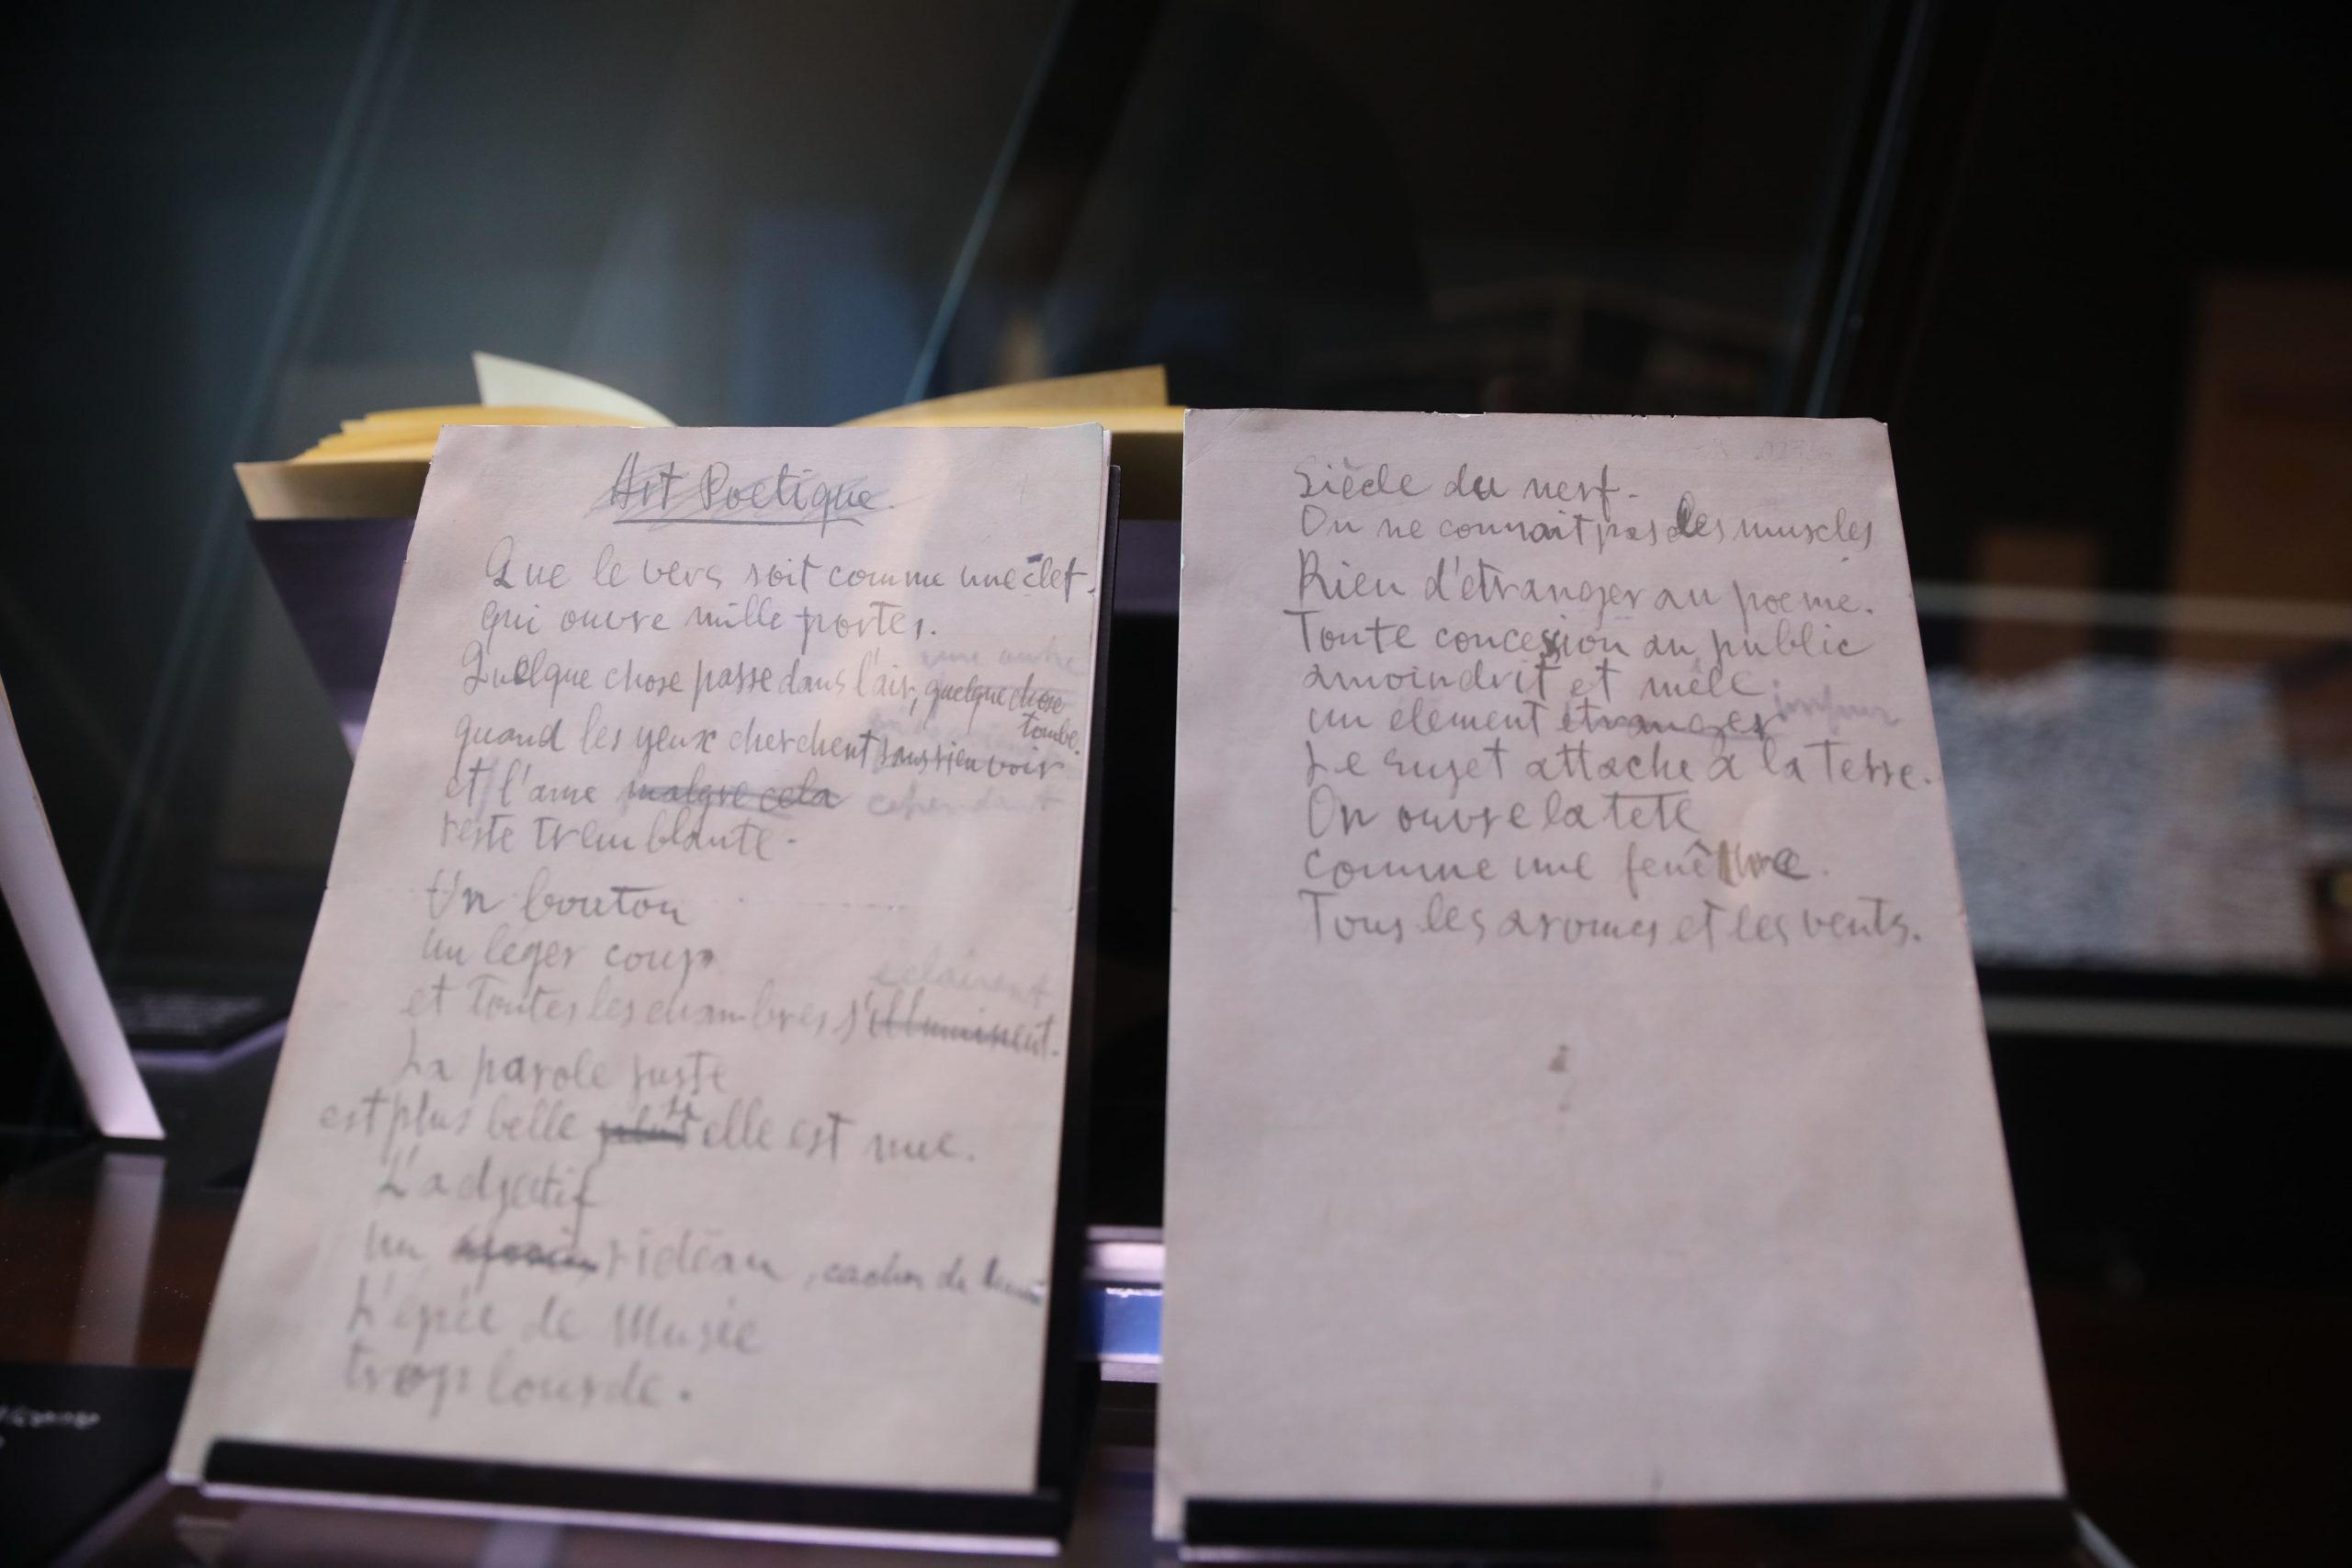 Art Poetique
Que le vers soit comme une clef
qui ouvre mille portes.
Quelque chose passe dans l'air, quelque chose
une autre
tombe.
quand les yeux cherchent sans rien voir
et l'ame malgre cela cependant
reste tremblante.
Un bouton
un leger coup
éclairent
et toutes les chambres s'illuminent.
La parole juste
est plus belle si elle est nue.
L'adjectif
un rideau, cacher de
L'epée de Musée
trop lourde.
Siècle du nerf.
On ne connait pas les muscles
Rien d'etranger au poeme.
Toute concession au public
amoindrit et mêle
un element etranger
Le sujet attache a la Terre.
On ouvre la tete
comme une fenêtre.
Tous les aromes et les vents.